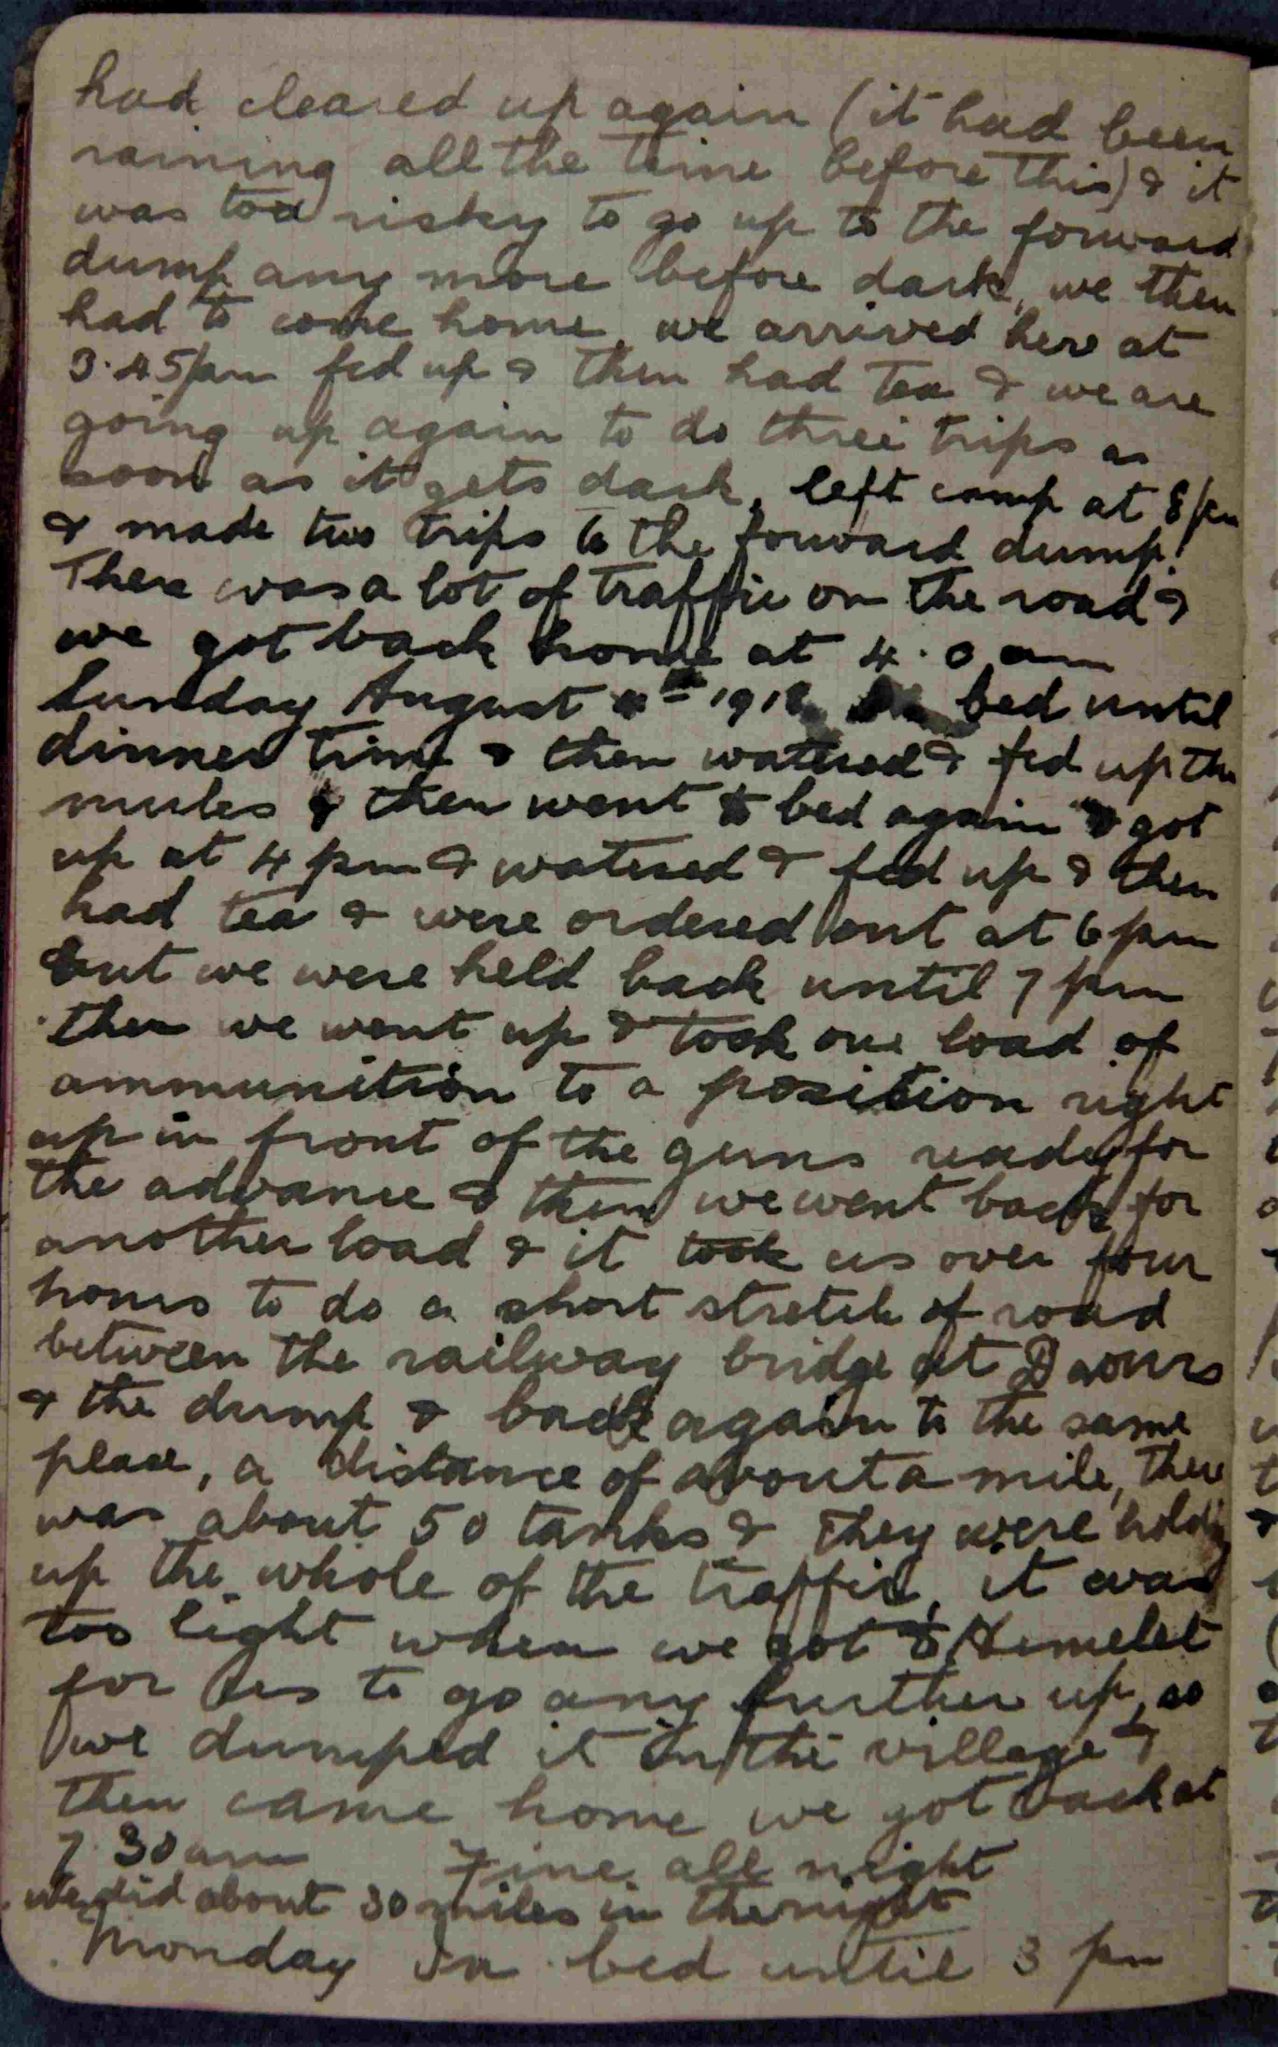 had cleared up again (it had been
raining all the time before this) & it
was too risky to go up to the forward
dump any more before dark, we then
had to come home, we arrived here at
3.45pm fed up & then had tea & we are
going up again to do three trips as
soon as it gets dark, left camp at 8pm
& made two trips to the forward dump.
There was a lot of traffic on the road &
we got back home at 4.0 am
Sunday August 4th 1918 In bed until
dinner time & then watered & fed up the
mules & then went to bed again & got
up at 4 pm & watered & fed up & then
had tea & were ordered out at 6 pm
but we were held back until 7 pm
then we went up & took one load of
ammunition to a position right
up in front of the guns ready for
the advance & then we went back for
another load & it took us over four
hours to do a short stretch of road
between the railway bridge at Daours
& the dump & back again to the same
place, a distance of about a mile, there
was about 50 tanks & they were holdig
up the whole of the traffic, it was
too light when we got to Hemelet
for us to go any further up, so
we dumped it in the village &
then came home we got back at
7.30 am Fine all night
we did about 30 miles in the night
Monday In bed until 3 pm